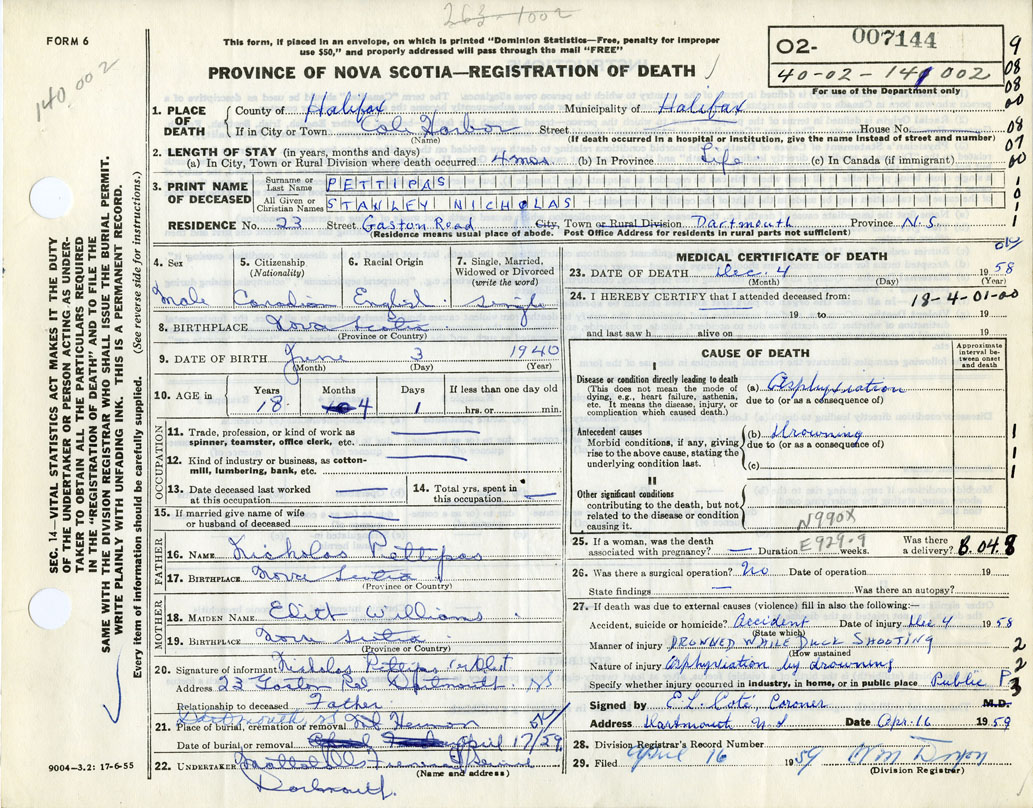 263-1002
FORM 6
This form, if placed in an envelope, on which is printed "Dominion Statistics—Free, penalty for improper
use $50," and properly addressed will pass through the mail "FREE"
PROVINCE OF NOVA SCOTIA—REGISTRATION OF DEATH
02- 007144
40-02-141 002
For use of the Department only
140,002
9
08
08
00
08
07
00
1
0
1
1
1. PLACE OF DEATH
County of Halifax Municipality of Halifax
If in City or Town Cole Harbor Street House No.
(Name) (If death occurred in a hospital or institution, give the name instead of street and number)
2. LENGTH OF STAY (in years, months and days)
(a) In City, Town or Rural Division where death occurred 4 mos. (b) In Province Life (c) In Canada (if immigrant)
3. PRINT NAME OF DECEASED
Surname or Last Name PETTIPAS
All Given or Christian Names STANLEY NICHOLAS
RESIDENCE No. 23 Street Gaston Road City, Town or Rural Division Dartmouth Province N.S.
(Residence means usual place of abode. Post Office Address for residents in rural parts not sufficient)
SEC. 14—VITAL STATISTICS ACT MAKES IT THE DUTY
OF THE UNDERTAKER OR PERSON ACTING AS UNDER-
TAKER TO OBTAIN ALL THE PARTICULARS REQUIRED
IN THE "REGISTRATION OF DEATH" AND TO FILE THE
SAME WITH THE DIVISION REGISTRAR WHO SHALL ISSUE THE BURIAL PERMIT.
WRITE PLAINLY WITH UNFADING INK. THIS IS A PERMANENT RECORD.
Every item of information should be carefully supplied. (See reverse side for instructions.)
4. Sex
Male
5. Citizenship
(Nationality)
Canadian
6. Racial Origin
English
7. Single, Married,
Widowed or Divorced
(write the word)
Single
8. BIRTHPLACE Nova Scotia
(Province or Country)
9. DATE OF BIRTH June 3 1940
(Month) (Day) (Year)
10. AGE in
Years Months Days If less than one day old
18 4 1 hrs. or min.
OCCUPATION
11. Trade, profession, or kind of work as
spinner, teamster, office clerk, etc.
12. Kind of industry or business, as cotton-
mill, lumbering, bank, etc.
13. Date deceased last worked
at this occupation
14. Total yrs. spent in
this occupation
15. If married give name of wife
or husband of deceased
FATHER
16. NAME Nicholas Pettipas
17. BIRTHPLACE Nova Scotia
(Province or Country)
MOTHER
18. MAIDEN NAME Edith Williams
19. BIRTHPLACE Nova Scotia
(Province or Country)
20. Signature of informant Nicholas Pettipas
Address 23 Gaston Rd Dartmouth NS
Relationship to deceased Father
Dartmouth, NS
21. Place of burial, cremation or removal Mt Hermon
Date of burial or removal April 17/59
22. UNDERTAKER
(Name and address)
Dartmouth.
9004-3.2: 17-6-55
MEDICAL CERTIFICATE OF DEATH
ok
23. DATE OF DEATH Dec. 4 1958
(Month) (Day) (Year)
24. I HEREBY CERTIFY that I attended deceased from: 18-4-01-00
19 to 19
and last saw h alive on 19
CAUSE OF DEATH
Approximate
interval be-
tween onset
and death
I
Disease or condition directly leading to death
(This does not mean the mode of
dying, e.g., heart failure, asthenia,
etc. It means the disease, injury, or
complication which caused death.)
(a) Asphyxiation
due to (or as a consequence of)
Antecedent causes
Morbid conditions, if any, giving
rise to the above cause, stating the
underlying condition last.
(b) Drowning
due to (or as a consequence of)
(c)
1
1
1
II
Other significant conditions
contributing to the death, but not
related to the disease or condition
causing it.
N990X
E929.9
25. If a woman, was the death
associated with pregnancy? — Duration weeks. Was there
a delivery? B.04.8
26. Was there a surgical operation? No Date of operation 19
State findings — Was there an autopsy?
27. If death was due to external causes (violence) fill in also the following:—
Accident, suicide or homicide? Accident Date of injury Dec 4 1958
(State which)
Manner of injury DROWNED WHILE DUCK SHOOTING 2
(How sustained
Nature of injury Asphyxiation by drowning 2
Specify whether injury occurred in industry, in home, or in public place Public P. 3
Signed by E.L. Coté, Coroner M.D.
Address Dartmouth N.S Date Apr. 16 1959
28. Division Registrar's Record Number
29. Filed April 16 1959
(Division Registrar)